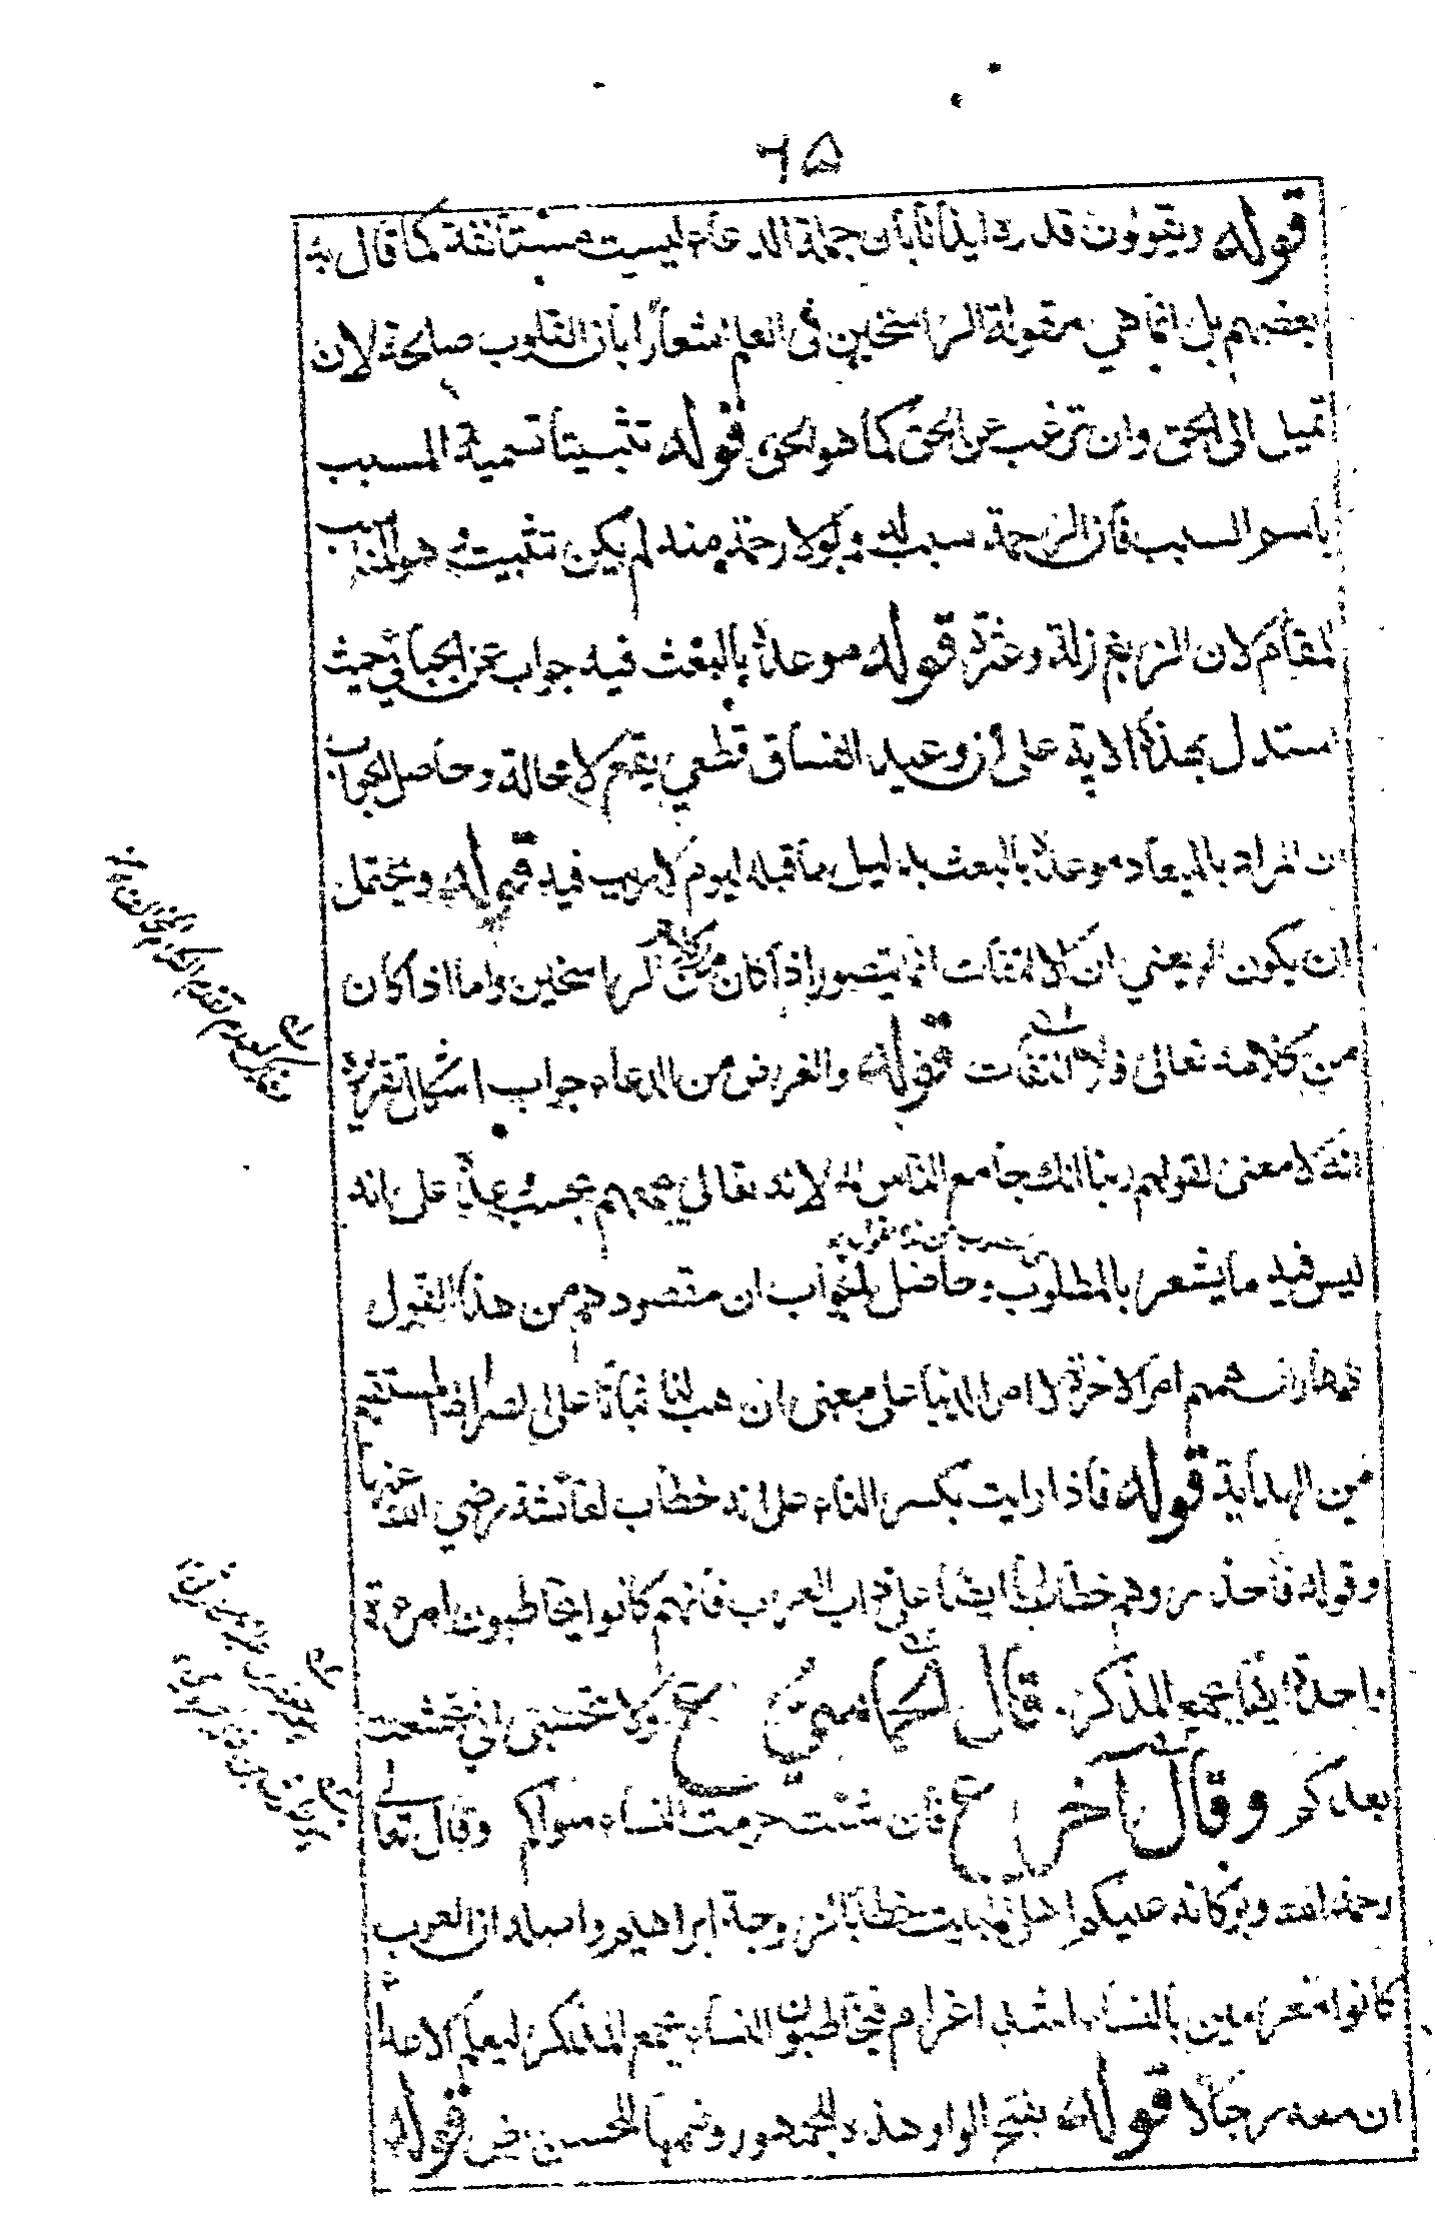 ٦٥
قوله ويقولون قدره ايذانا بان جملة الدعاء ليست مستأنفة كما قال به
بعضهم بل انما هي مقولة الراسخين فى العلم اشعارا بان القلوب صالحة لان
تميل الى الحق وان ترغب عن الحق كما هو الحق قوله تثبيتا تسمية المسبب
باسم السبب فان الرحمة سبب له ولولا رحمة منه لم يكن تثبيت وهو المناسب
المقام لان الزيغ زلة وعثرة قوله موعدا بالبعث فيه جواب عن الجبائي حيث
استدل بهذه الاية على ان وعيد الفساق قطعي يقع لا محالة وحاصل الجواب
ان المراد بالميعاد موعدا بالبعث بدليل ما قبله ليوم لا ريب فيه قوله ويحتمل
ان يكون الخ يعني ان الالتفات انما يتصور اذا كان من كلام الراسخين واما اذا كان
من كلامه تعالى فلا التفات قوله والغرض من الدعاء جواب اشكال تقريره
انه لا معنى لقولهم ربنا انك جامع الناس الخ لانه تعالى يجمعهم بحسب وعده على انه
ليس فيه ما يشعر بالمطلوب وحاصل الجواب ان مقصودهم من هذا القول
همهم امر الاخرة لا امر الدنيا على معنى ان هب لنا ثباتا على الصراط المستقيم
من الهداية قوله فاذا رايت بكسر التاء على انه خطاب لعائشة رضي الله عنها
وقوله فاحذروهم خطاب لها ايضا على داب العرب فانهم كانوا يخاطبون امرءة
واحدة ايضا بجمع المذكر قال الحماسي ع ولا تحسبي اني تخشعت
بعدكم وقال آخر ع فان شئت حرمت النساء سواكم وقال تعالى
رحمة الله وبركاته عليكم اهل البيت خطابا لزوجة ابراهيم واصله ان العرب
كانوا مغرمين بالنساء اشد اغرام فيخاطبون النساء بجمع المذكر ليعلم الاعداء
ان معه رجالا قوله بفتح الواو هذه للجمهور وضمها للحسن رض قوله